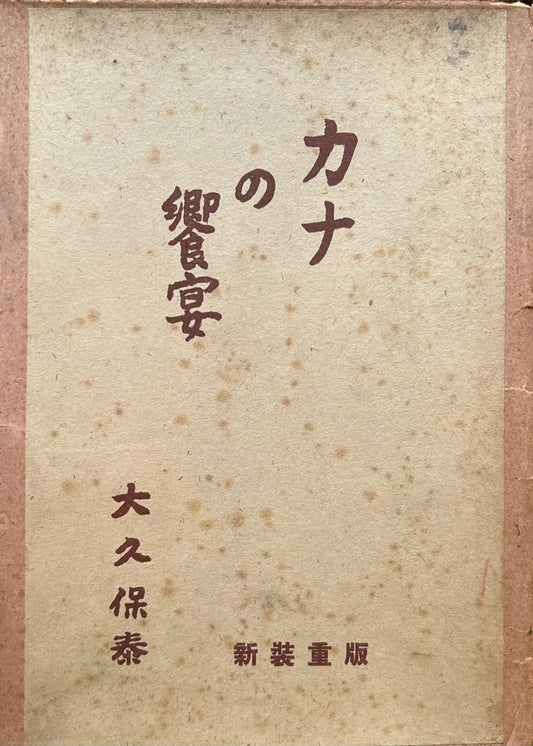 カナ
の
饗宴
大久保泰
新装重版